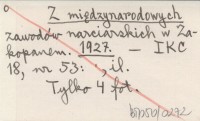 Z międzynarodowych
zawodów narciarskich w Za-
kopanem. 1927. — IKC
18, nr 53: , il.
Tylko 4 fot.